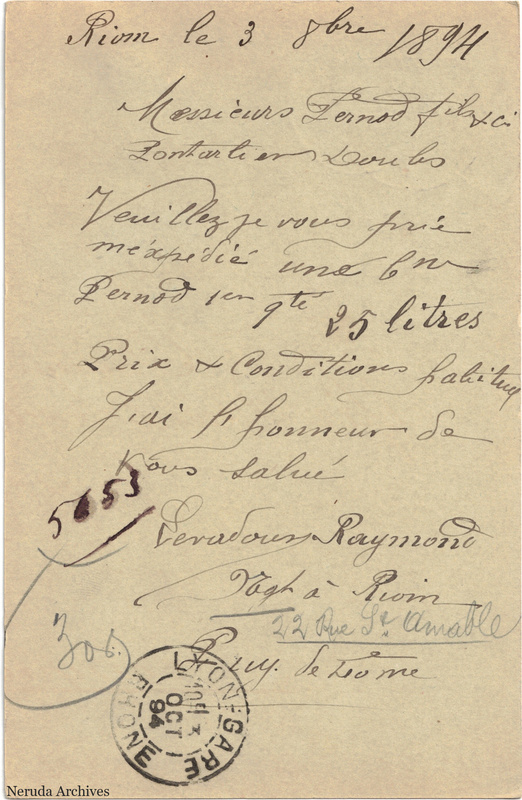 Riom le 3 8bre 1894
Messieurs Pernod fils & Cie
Pontarlier Doubs
Veuillez je vous prie
m'éxpédié une Bnne
Pernod 1er qté 25 litres
Prix & Conditions habituel
J'ai l'honneur de
Vous salué
5653
Raymond
Negt à Riom
22 Rue St Amable
Puy. de Dôme
300
LYON-GARE
3
OCT
94
RHONE
Neruda Archives